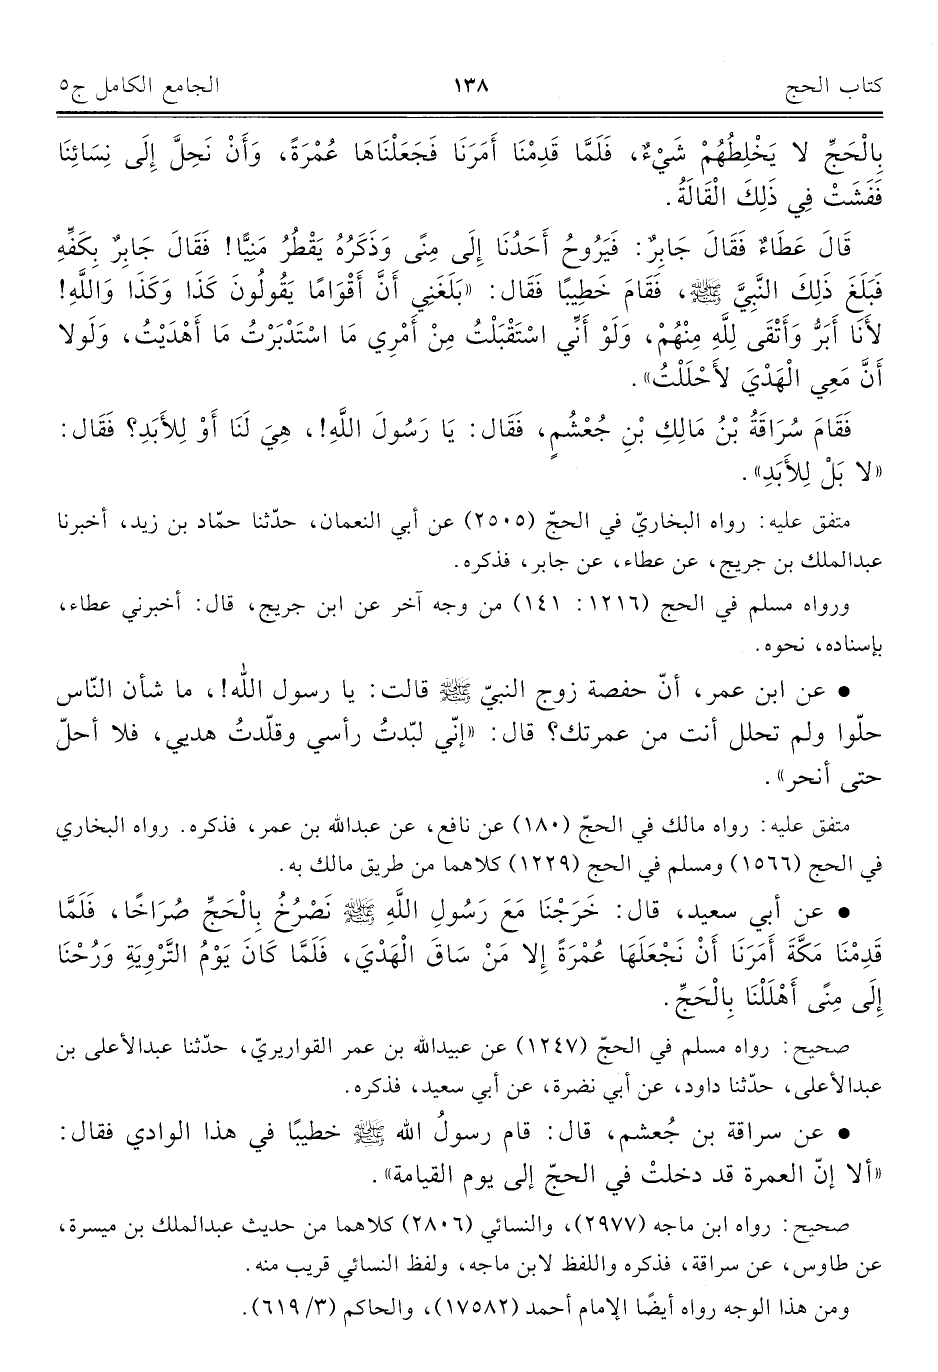 كتاب الحج ١٣٨ الجامع الكامل ج٥
بِالْحَجِّ لا يَخْلِطُهُمْ شَيْءٌ، فَلَمَّا قَدِمْنَا أَمَرَنَا فَجَعَلْنَاهَا عُمْرَةً، وَأَنْ نَحِلَّ إِلَى نِسَائِنَا
فَفَشَتْ فِي ذَلِكَ الْقَالَةُ.
قَالَ عَطَاءٌ فَقَالَ جَابِرٌ: فَيَرُوحُ أَحَدُنَا إِلَى مِنًى وَذَكَرُهُ يَقْطُرُ مَنِيًّا! فَقَالَ جَابِرٌ بِكَفِّهِ
فَبَلَغَ ذَلِكَ النَّبِيَّ ﷺ، فَقَامَ خَطِيبًا فَقَال: «بَلَغَنِي أَنَّ أَقْوَامًا يَقُولُونَ كَذَا وَكَذَا وَاللَّهِ!
لأَنَا أَبَرُّ وَأَتْقَى لِلَّهِ مِنْهُمْ، وَلَوْ أَنِّي اسْتَقْبَلْتُ مِنْ أَمْرِي مَا اسْتَدْبَرْتُ مَا أَهْدَيْتُ، وَلَولا
أَنَّ مَعِي الْهَدْيَ لأَحْلَلْتُ».
فَقَامَ سُرَاقَةُ بْنُ مَالِكِ بْنِ جُعْشُمٍ، فَقَال: يَا رَسُولَ اللَّهِ!، هِيَ لَنَا أَوْ لِلأَبَدِ؟ فَقَال:
«لا بَلْ لِلأَبَدِ».
متفق عليه: رواه البخاريّ في الحجّ (٢٥٠٥) عن أبي النعمان، حدّثنا حمّاد بن زيد، أخبرنا
عبدالملك بن جريج، عن عطاء، عن جابر، فذكره.
ورواه مسلم في الحج (١٢١٦: ١٤١) من وجه آخر عن ابن جريج، قال: أخبرني عطاء،
بإسناده، نحوه.
● عن ابن عمر، أنّ حفصة زوج النبيّ ﷺ قالت: يا رسول الله!، ما شأن النّاس
حلّوا ولم تحلل أنت من عمرتك؟ قال: «إنّي لبّدتُ رأسي وقلّدتُ هديي، فلا أحلّ
حتى أنحر».
متفق عليه: رواه مالك في الحجّ (١٨٠) عن نافع، عن عبدالله بن عمر، فذكره. رواه البخاري
في الحج (١٥٦٦) ومسلم في الحج (١٢٢٩) كلاهما من طريق مالك به.
● عن أبي سعيد، قال: خَرَجْنَا مَعَ رَسُولِ اللَّهِ ﷺ نَصْرُخُ بِالْحَجِّ صُرَاخًا، فَلَمَّا
قَدِمْنَا مَكَّةَ أَمَرَنَا أَنْ نَجْعَلَهَا عُمْرَةً إِلا مَنْ سَاقَ الْهَدْيَ، فَلَمَّا كَانَ يَوْمُ التَّرْوِيَةِ وَرُحْنَا
إِلَى مِنًى أَهْلَلْنَا بِالْحَجِّ.
صحيح: رواه مسلم في الحجّ (١٢٤٧) عن عبيدالله بن عمر القواريريّ، حدّثنا عبدالأعلى بن
عبدالأعلى، حدّثنا داود، عن أبي نضرة، عن أبي سعيد، فذكره.
● عن سراقة بن جُعشم، قال: قام رسولُ الله ﷺ خطيبًا في هذا الوادي فقال:
«ألا إنّ العمرة قد دخلتْ في الحجّ إلى يوم القيامة».
صحيح: رواه ابن ماجه (٢٩٧٧)، والنسائي (٢٨٠٦) كلاهما من حديث عبدالملك بن ميسرة،
عن طاوس، عن سراقة، فذكره واللفظ لابن ماجه، ولفظ النسائي قريب منه.
ومن هذا الوجه رواه أيضًا الإمام أحمد (١٧٥٨٢)، والحاكم (٣/ ٦١٩).